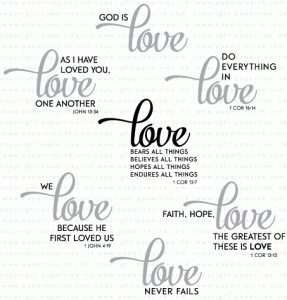 GOD IS
love
AS I HAVE
LOVED YOU,
love
ONE ANOTHER
JOHN 13:34
DO
EVERYTHING
IN
love
1 COR 16:14
love
BEARS ALL THINGS
BELIEVES ALL THINGS
HOPES ALL THINGS
ENDURES ALL THINGS
1 COR 13:7
WE
love
BECAUSE HE
FIRST LOVED US
1 JOHN 4:19
FAITH, HOPE,
love
THE GREATEST OF
THESE IS LOVE
1 COR 13:13
love
NEVER FAILS